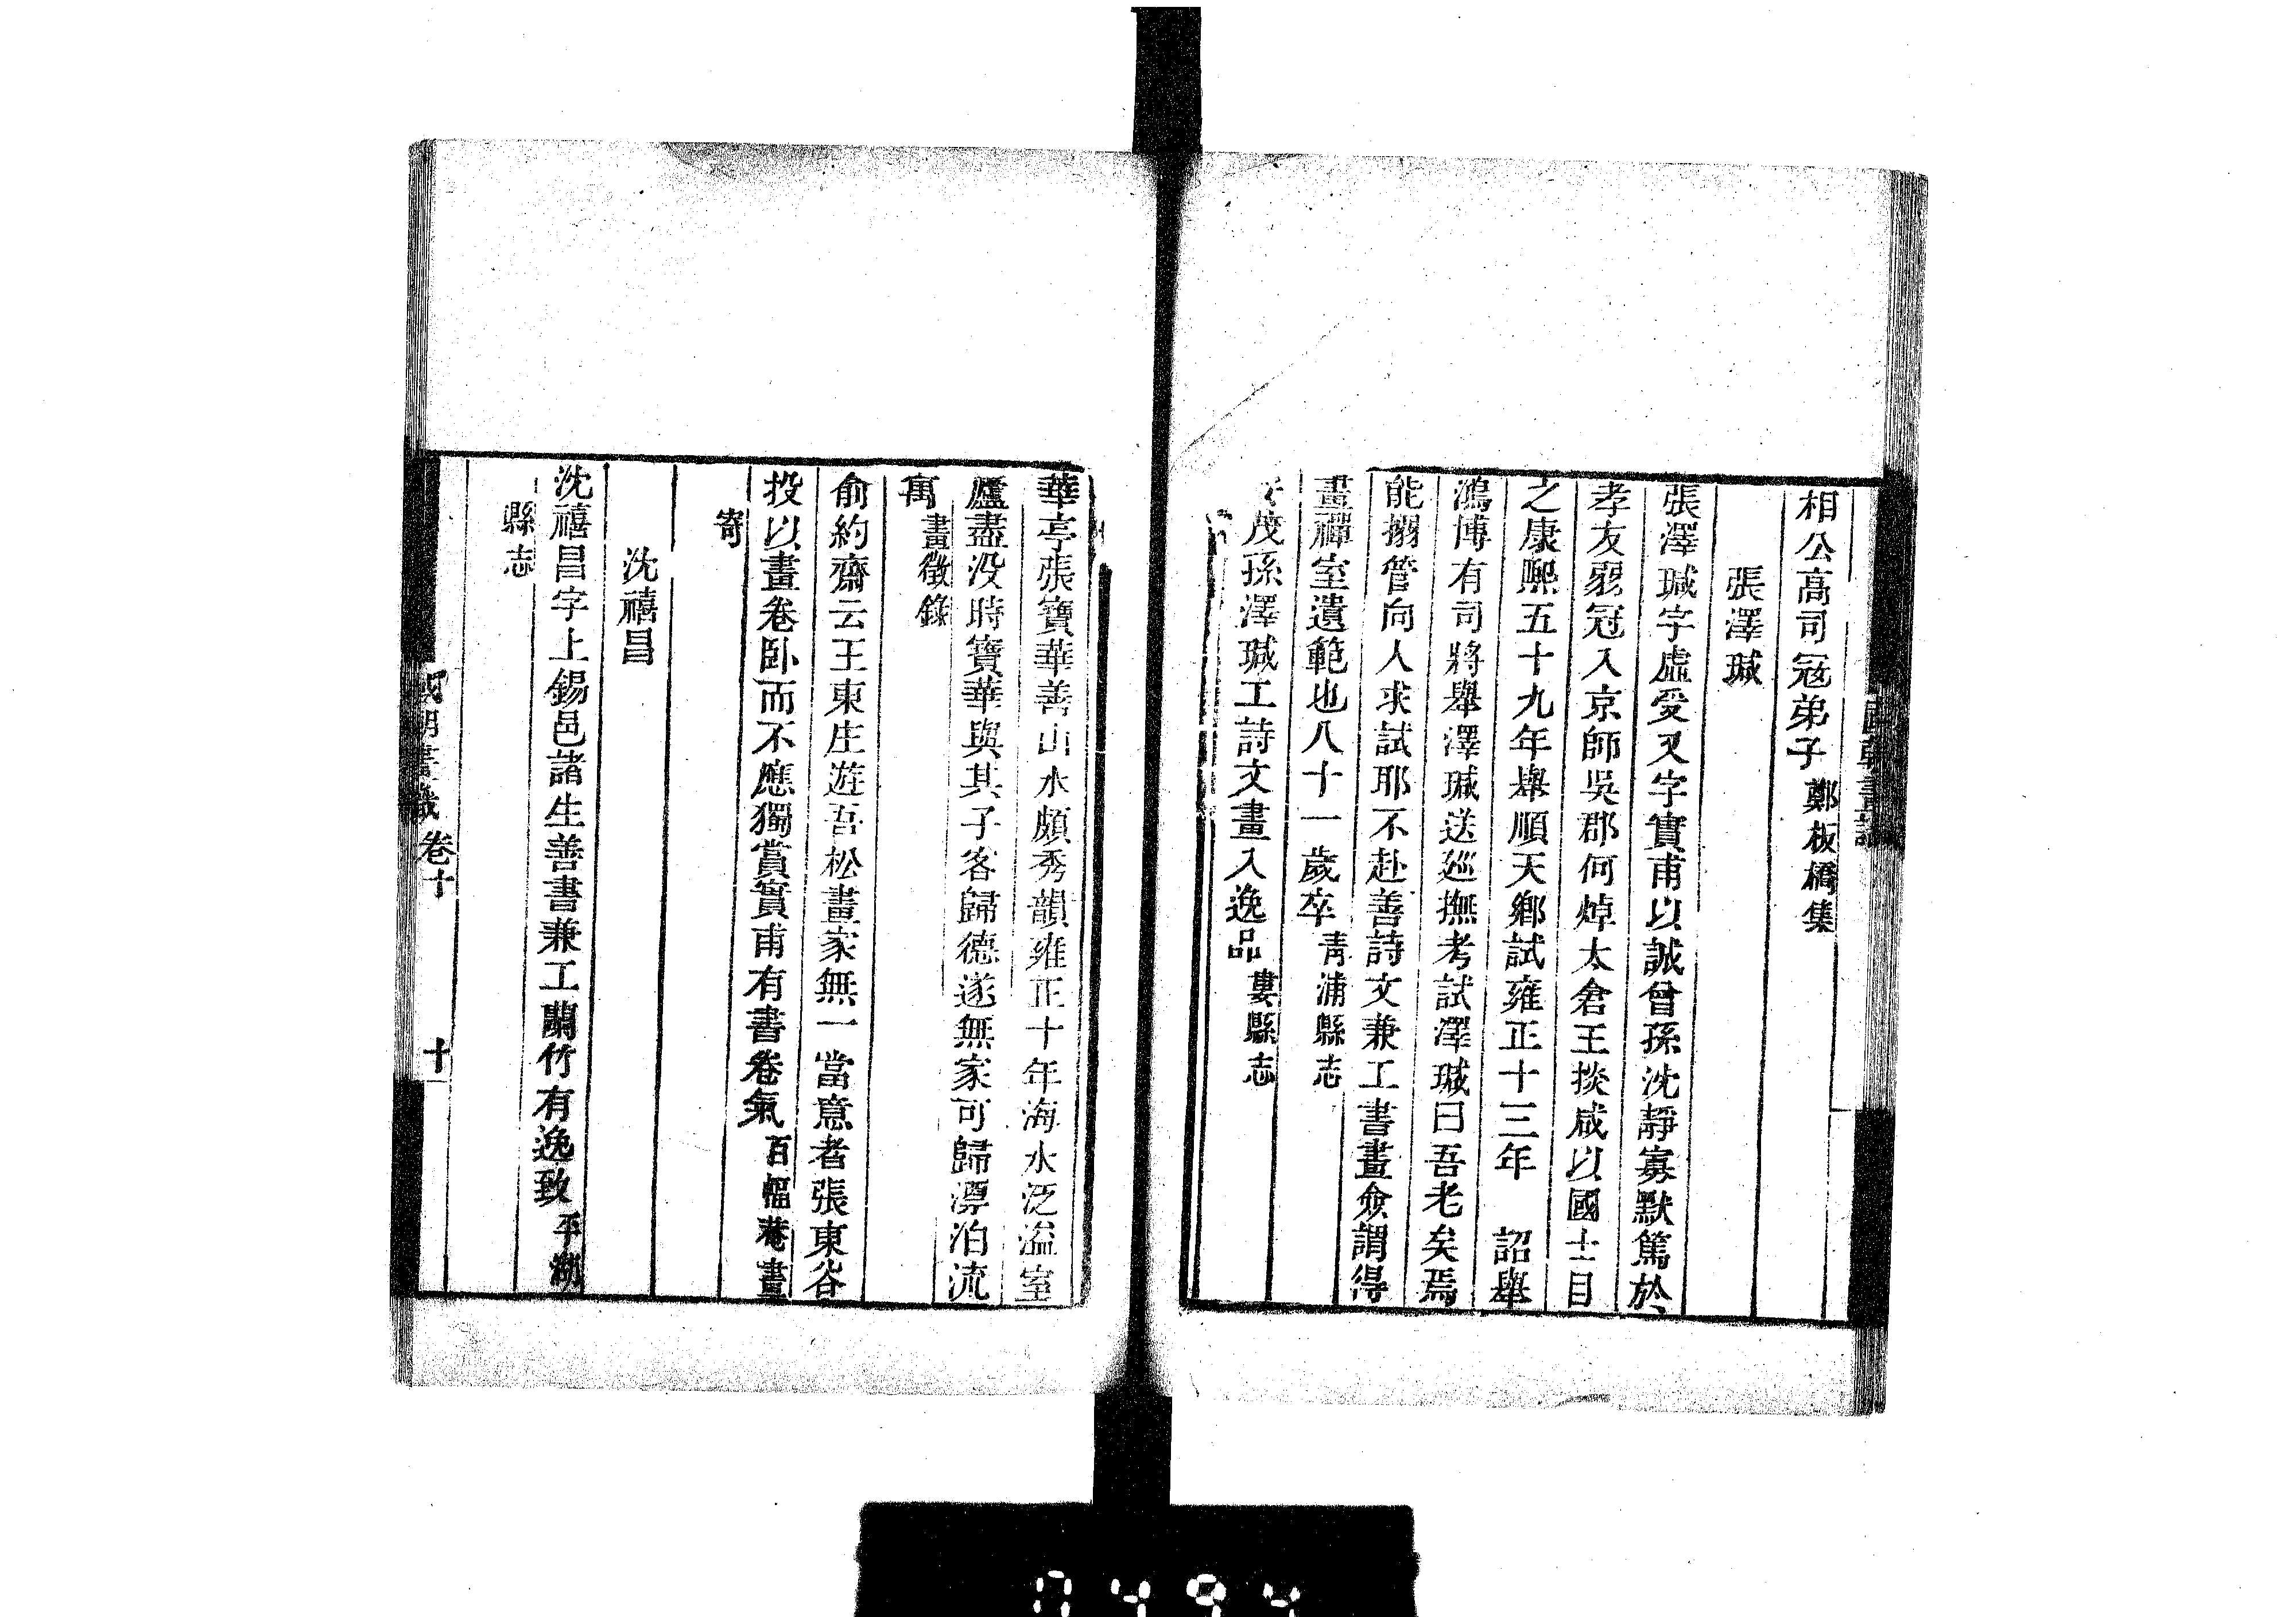 相公高司寇弟子鄭板橋集
張澤瑊
張澤瑊字虛受又字實甫以誠曾孫沈靜寡默篤於
孝友弱冠入京師吳郡何焯太倉王掞咸以國士目
之康熙五十九年舉順天鄉試雍正十三年 詔舉
鴻博有司將舉澤瑊送廵撫考試澤瑊曰吾老矣焉
能搦管向人求試耶不赴善詩文兼工書畫僉謂得
畫禪室遺範也八十一歲卒青浦縣志
茂孫澤瑊工詩文畫入逸品婁縣志
華亭張寶華善山水頗秀韻雍正十年海水泛溢室
廬盡没時寶華與其子客歸德遂無家可歸漂泊流
寓畫徵錄
俞約齋云王東庄遊吾松畫家無一當意者張東谷
投以畫卷卧而不應獨賞實甫有書卷氣百幅菴畫
寄
沈禧昌
沈禧昌字上錫邑諸生善書兼工蘭竹有逸致平湖
縣志
國朝畫識 卷十 十
9494